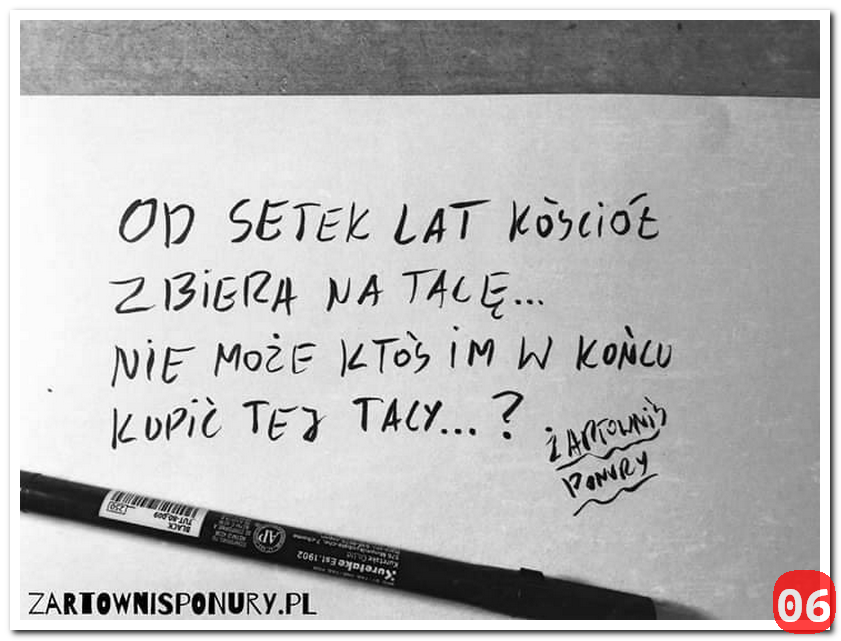 OD SETEK LAT KOŚCIÓŁ
ZBIERA NA TACĘ...
NIE MOŻE KTOŚ IM W KOŃCU
KUPIĆ TEJ TACY...?
ŻARTOWNIŚ
PONURY
BLACK
TUT-80,009
AP
Kuretake Est.1902
ZARTOWNISPONURY.PL
06